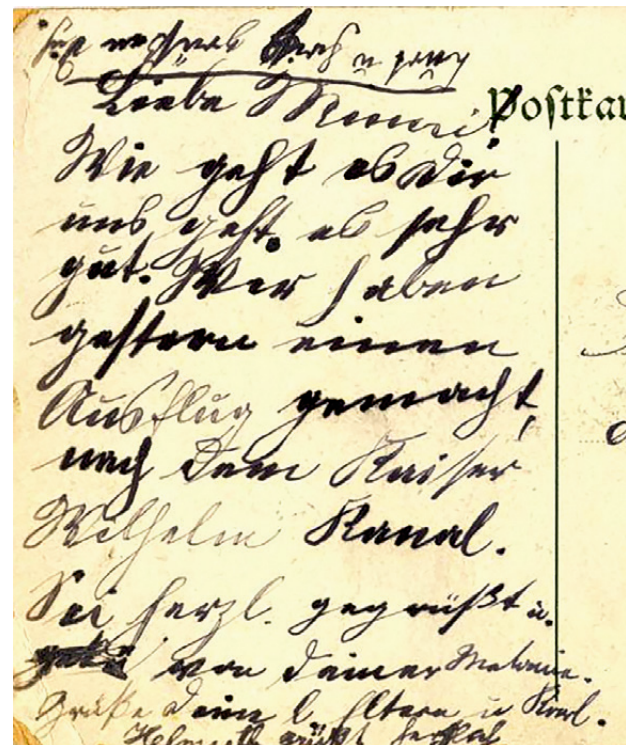 Liebe Mimi!
Postkar
Wie geht es Dir
uns geht es sehr
gut. Wir haben
gestern einen
Ausflug gemacht,
nach dem Kaiser
Wilhelm Kanal.
Sei herzl. gegrüßt u.
von deiner Melanie.
Grüße Deine l. Eltern u. Karl.
Helmuth grüßt herzlich